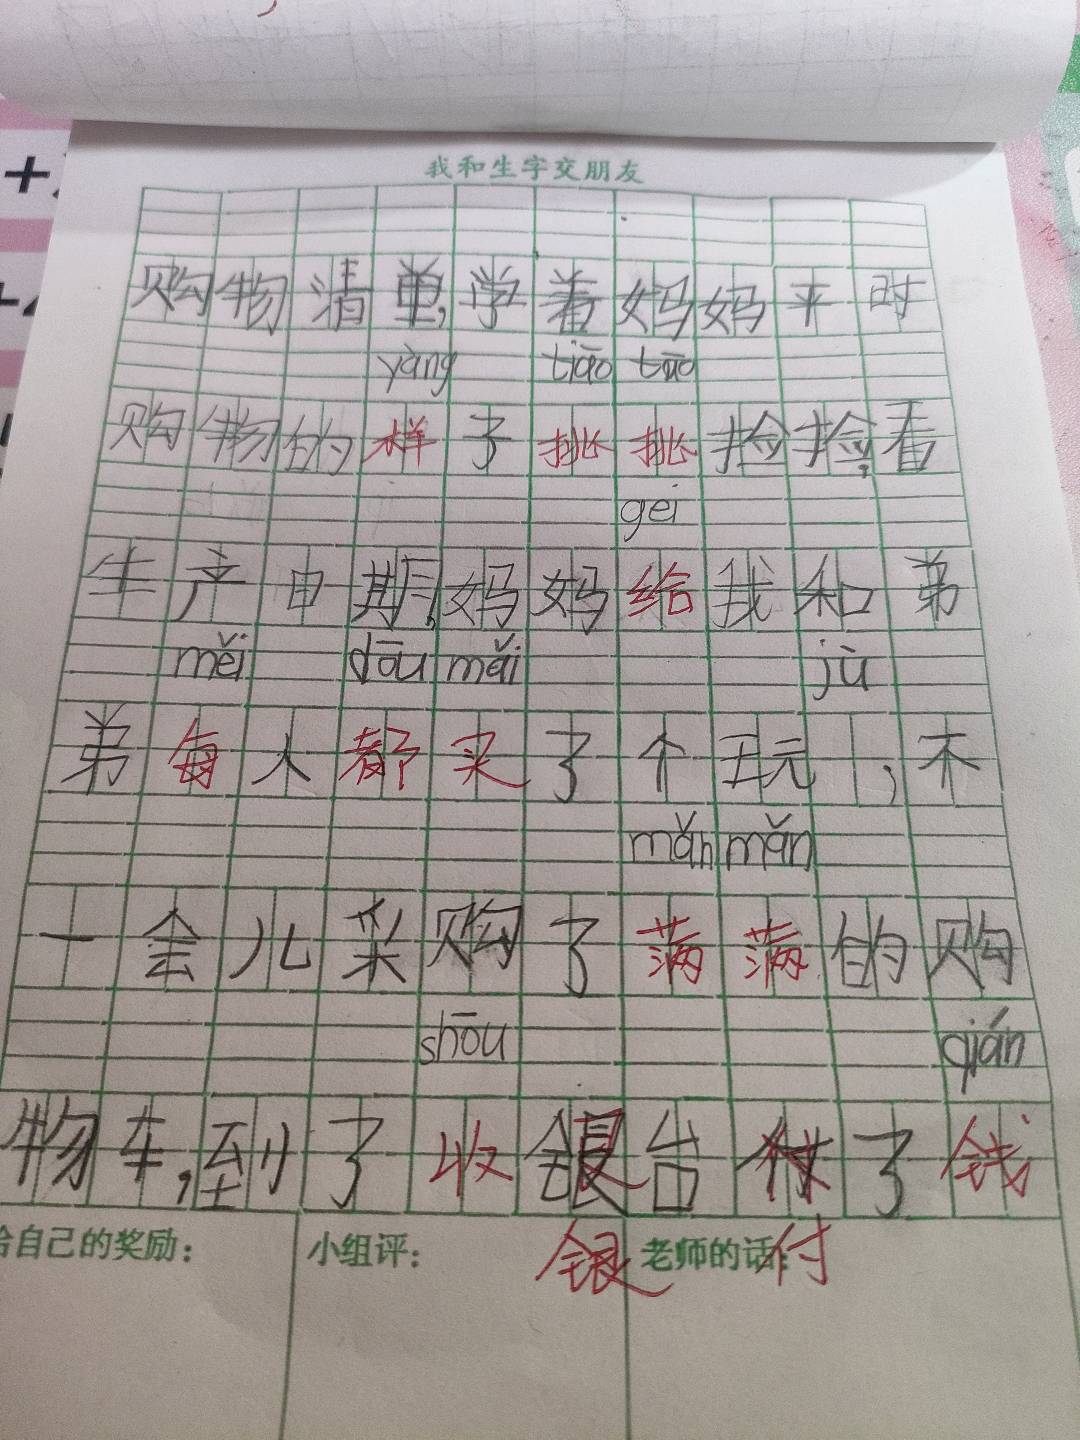 我和生字交朋友
购物清单,学着妈妈平时
yàng tiāo tāo
购物的样子挑挑捡捡,看
gei
生产日期,妈妈给我和弟
měi dōu mǎi jù
弟每人都买了个玩具,不
mǎn mǎn
一会儿采购了满满的购
shōu qián
物车,到了收银台付了钱
给自己的奖励: 小组评: 银 老师的话: 付